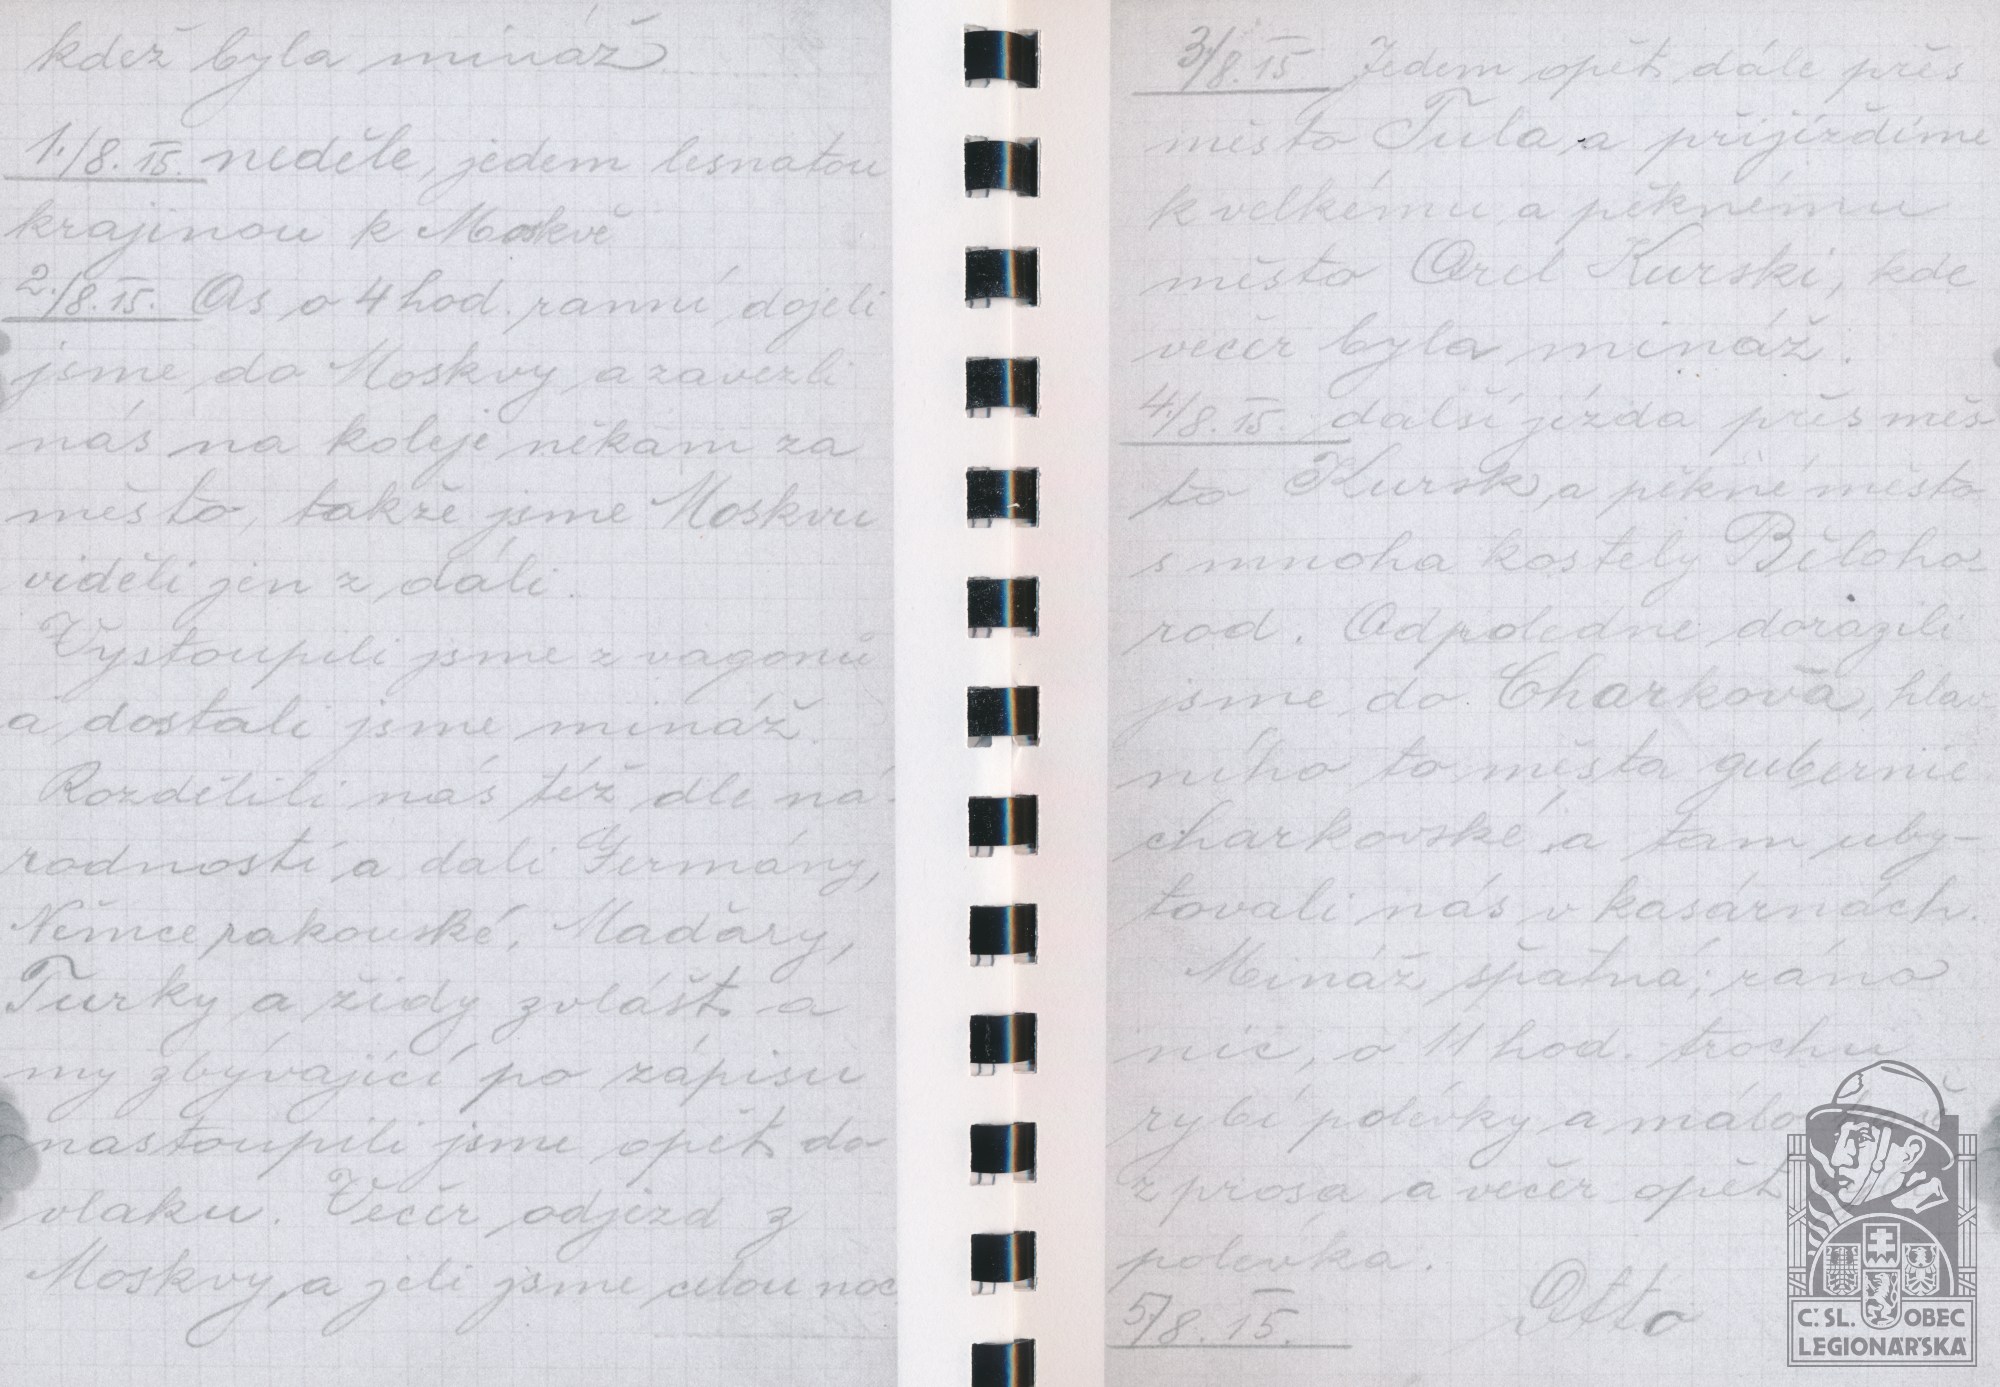 kdež byla mináž
1./8. 15. neděle, jedem lesnatou
krajinou k Moskvě
2./8. 15. As o 4 hod. ranní dojeli
jsme do Moskvy a zavezli
nás na koleje někam za
město, takže jsme Moskvu
viděli jen z dáli.
Vystoupili jsme z vagonů
a dostali jsme mináž.
Rozdělili nás též dle ná-
rodností a dali Germány,
Němce rakouské, Maďary,
Turky a židy zvlášt a
my zbývající po zápisu
nastoupili jsme opět do
vlaku. Večer odjezd z
Moskvy, a jeli jsme celou noc
3./8. 15 Jedem opět dále přes
město Tula, a přijíždíme
k velkému a pěknému
město Orel Kurski, kde
večer byla mináž.
4./8. 15. další jízda přes měs-
to Kursk, a pěkné město
s mnoha kostely Běloho-
rod. Odpoledne dorazili
jsme do Charkova, hlav
ního to města gubernie
charkovské, a tam uby-
tovali nás v kasárnách.
Mináž špatná; ráno
nic, o 11 hod. trochu
rybí polévky a málo
z prosa a večer opět
polévka.
5/8. 15. Otto
Č.SL. OBEC
LEGIONÁŘSKÁ